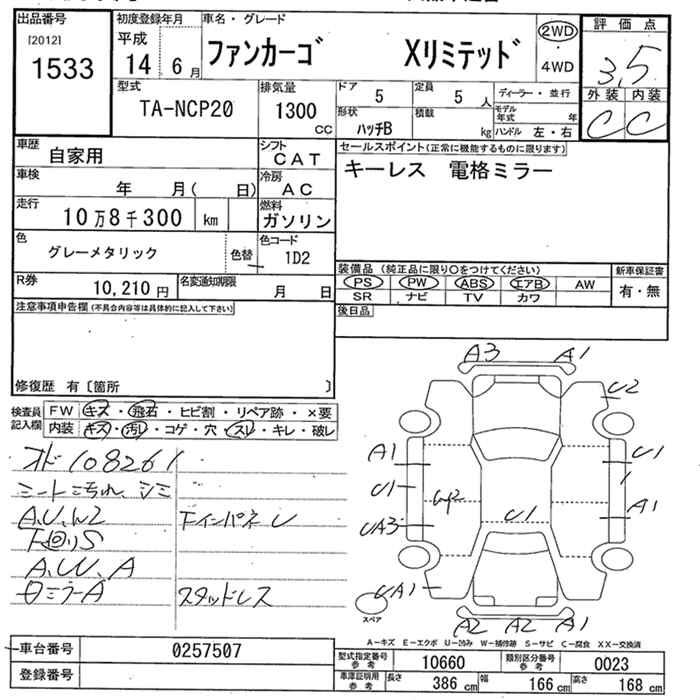 出品番号 [2012] 1533
初度登録年月 平成 14 6月
車名・グレード ファンカーゴ Xリミテッド
2WD ・ 4WD
評価点 3.5
外装 内装 C C
型式 TA-NCP20
排気量 1300 cc
ドア 5 定員 5 人
形状 ハッチB 積載 kg
ディーラー・並行
モデル年式 年
ハンドル 左・右
車歴 自家用
シフト CAT
車検 年 月( 日)
冷房 AC
走行 10万8千300 km
燃料 ガソリン
色 グレーメタリック 色替
色コード 1D2
R券 10,210円
名変通知期限 月 日
セールスポイント(正常に機能するものに限ります)
キーレス 電格ミラー
装備品 (純正品に限り○をつけてください)
PS PW ABS エアB AW
SR ナビ TV カワ
新車保証書 有・無
後日品
注意事項申告欄 (不具合内容等は具体的に記入して下さい)
修復歴 有〔箇所 〕
検査員記入欄
FW キズ・飛石・ヒビ割・リペア跡・×要
内装 キズ・汚れ・コゲ・穴・スレ・キレ・破レ
108261
シート汚れ、シミ
A,U,W2
下廻りS
A,W,A
ミラーA
Fインパネ U
スタッドレス
A3 A1
U2
A1 U1
U1 W2 A1
UA3 U1
UA1
A2 A2 A1
スペア
A-キズ E-エクボ U-凹み W-補修跡 S-サビ C-腐食 XX-交換済
車台番号 0257507
登録番号
型式指定番号 参考 10660
類別区分番号 参考 0023
車庫証明用 参考 長さ 386 cm 幅 166 cm 高さ 168 cm